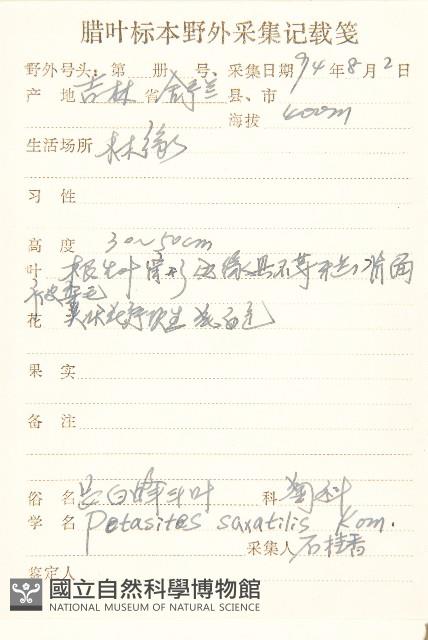 腊叶标本野外采集记载笺
野外号头：第 册 号、采集日期 94年8月2日
产 地 吉林 省 舒兰 县、市
海拔 400m
生活场所 林缘
习 性
高 度 30~50cm
叶 根生叶肾形 边缘具不等 背面
被 毛
花 状花序顶生 白色
果 实
备 注
俗 名 白蜂斗叶 科 菊科
学 名 Petasites saxatilis Kom.
采集人 石桂香
鉴定人
國立自然科學博物館
NATIONAL MUSEUM OF NATURAL SCIENCE